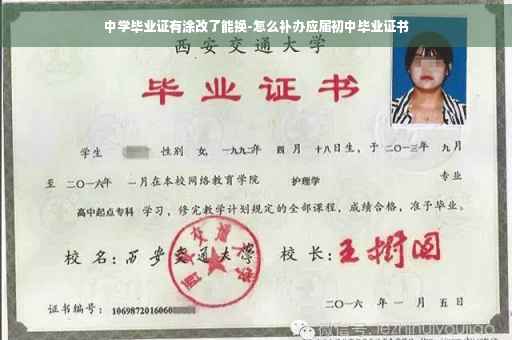 中学毕业证有涂改了能换-怎么补办应届初中毕业证书
西安交通大学
毕业证书
学生 性别 女, 一九九二年 四月 十八日生, 于二〇一三年 九月
至 二〇一六年 一月在本校网络教育学院 护理学 专业
高中起点专科 学习, 修完教学计划规定的全部课程, 成绩合格, 准予毕业。
校名: 西安交通大学 校长: 王树国
西安交通大学
证书编号: 1069872016060
二〇一六年一月五日
微信号: jiezhinuiyoujiao